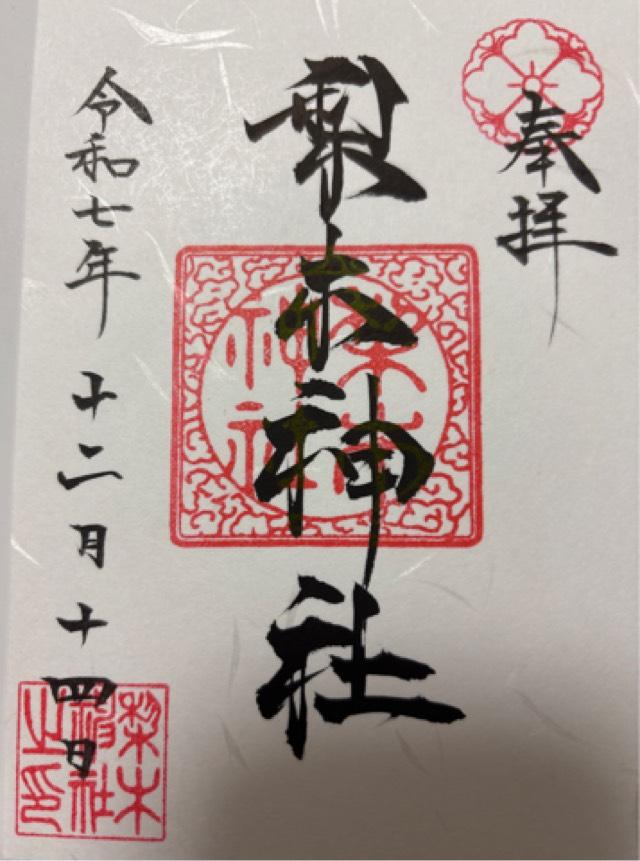 奉拝
梨木神社
令和七年 十二月 十四日
梨木神社
梨木神社之印